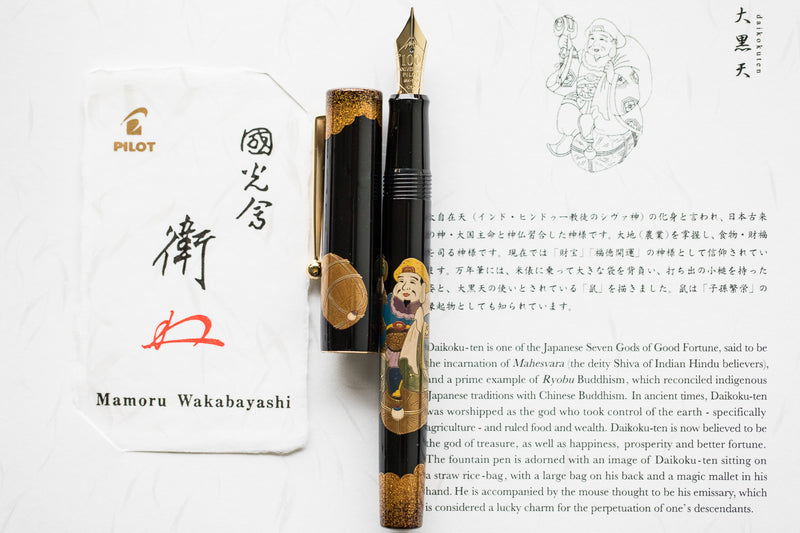 PILOT
國光會
衛
Mamoru Wakabayashi
PILOT
大黒天
daikokuten
大自在天（インド・ヒンドゥー教徒のシヴァ神）の化身と言われ、日本古来
の神・大国主命と神仏習合した神様です。大地（農業）を掌握し、食物・財福
を司る神様です。現在では「財宝」「福徳開運」の神様として信仰されてい
ます。万年筆には、米俵に乗って大きな袋を背負い、打ち出の小槌を持った
姿と、大黒天の使いとされている「鼠」を描きました。鼠は「子孫繁栄」の
縁起物としても知られています。
Daikoku-ten is one of the Japanese Seven Gods of Good Fortune, said to be
the incarnation of Mahesvara (the deity Shiva of Indian Hindu believers),
and a prime example of Ryobu Buddhism, which reconciled indigenous
Japanese traditions with Chinese Buddhism. In ancient times, Daikoku-ten
was worshipped as the god who took control of the earth - specifically
agriculture - and ruled food and wealth. Daikoku-ten is now believed to be
the god of treasure, as well as happiness, prosperity and better fortune.
The fountain pen is adorned with an image of Daikoku-ten sitting on
a straw rice-bag, with a large bag on his back and a magic mallet in his
hand. He is accompanied by the mouse thought to be his emissary, which
is considered a lucky charm for the perpetuation of one's descendants.